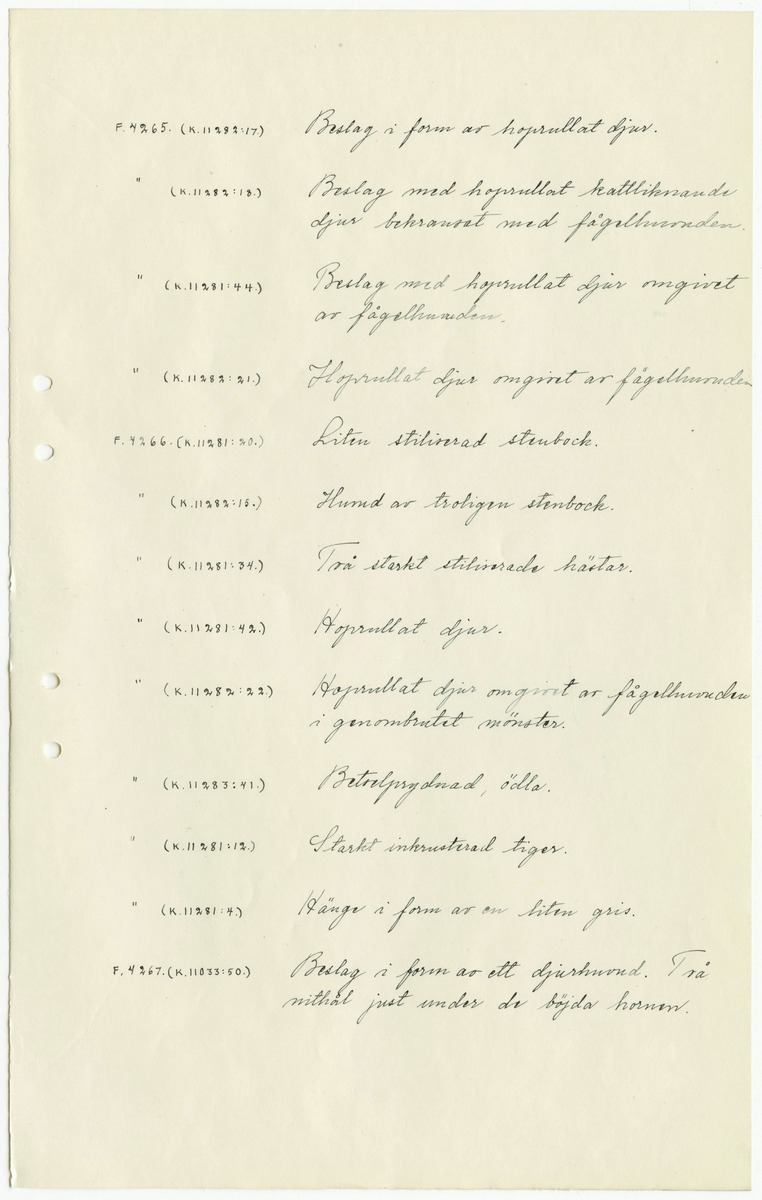 F. 4265. (K. 11282:17) Beslag i form av hoprullat djur.
" (K. 11282:18.) Beslag med hoprullat kattliknande
djur bekransat med fågelhuvuden.
" (K. 11281:44.) Beslag med hoprullat djur omgivet
av fågelhuvuden.
" (K. 11282:21.) Hoprullat djur omgivet av fågelhuvuden
F. 4266. (K. 11281:20.) Liten stiliserad stenbock.
" (K. 11282:15.) Huvud av troligen stenbock.
" (K. 11281:34.) Två starkt stiliserade hästar.
" (K. 11281:42.) Hoprullat djur.
" (K. 11282:22.) Hoprullat djur omgivet av fågelhuvuden
i genombrutet mönster.
" (K. 11283:41.) Betselprydnad, ödla.
" (K. 11281:12.) Starkt inkrusterad tiger.
" (K. 11281:4.) Hänge i form av en liten gris.
F. 4267. (K. 11033:50.) Beslag i form av ett djurhuvud. Två
nithål just under de böjda hornen.